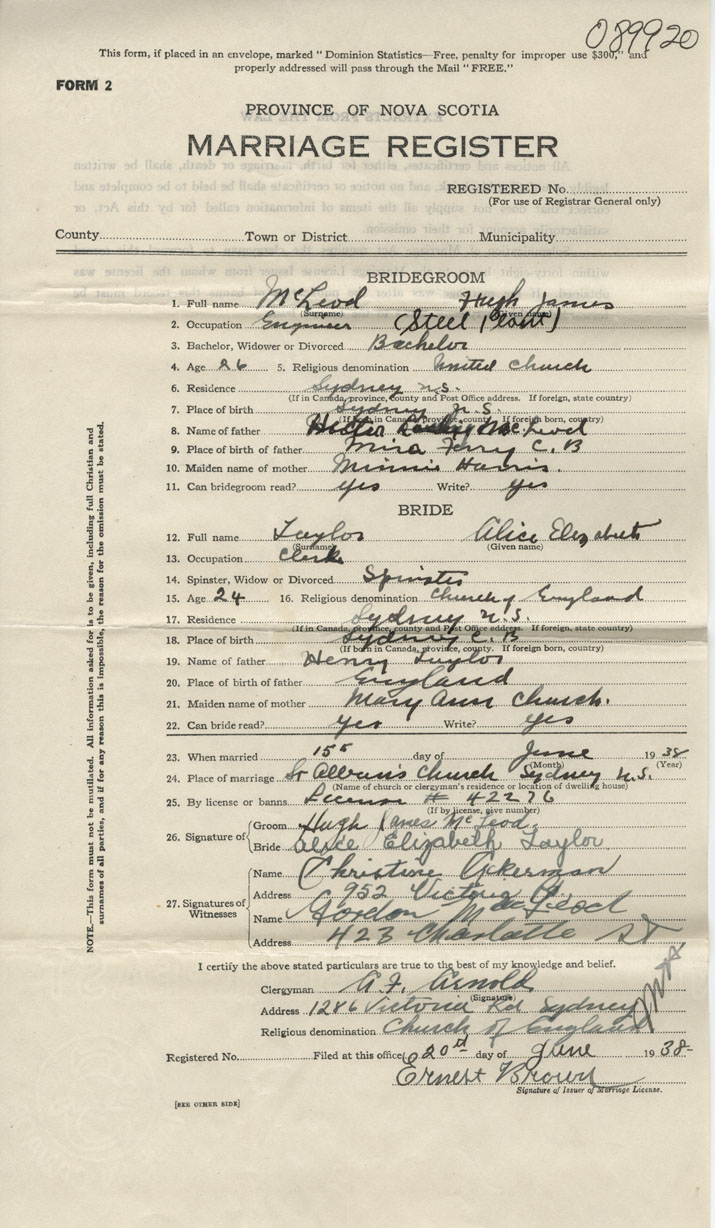 089920
This form, if placed in an envelope, marked "Dominion Statistics—Free, penalty for improper use $300," and
properly addressed will pass through the Mail "FREE."
FORM 2
PROVINCE OF NOVA SCOTIA
MARRIAGE REGISTER
REGISTERED No.
(For use of Registrar General only)
County Town or District Municipality
BRIDEGROOM
1. Full name McLeod Hugh James
(Surname) (Given name)
2. Occupation Engineer (Steel Plant)
3. Bachelor, Widower or Divorced Bachelor
4. Age 26 5. Religious denomination United Church
6. Residence Sydney N.S.
(If in Canada, province, county and Post Office address. If foreign, state country)
7. Place of birth Sydney N.S.
(If born in Canada, province, county. If foreign born, country)
8. Name of father McLeod
9. Place of birth of father Mira Ferry C. B
10. Maiden name of mother Minnie Harris.
11. Can bridegroom read? yes Write? yes
BRIDE
12. Full name Taylor Alice Elizabeth
(Surname) (Given name)
13. Occupation Clerk
14. Spinster, Widow or Divorced Spinster
15. Age 24 16. Religious denomination Church of England
17. Residence Sydney N.S.
(If in Canada, province, county and Post Office address. If foreign, state country)
18. Place of birth Sydney C. B
(If born in Canada, province, county. If foreign born, country)
19. Name of father Henry Taylor
20. Place of birth of father England
21. Maiden name of mother Mary Ann Church.
22. Can bride read? Yes Write? Yes
23. When married 15th day of June 1938
(Month) (Year)
24. Place of marriage St Alban's Church Sydney N.S.
(Name of church or clergyman's residence or location of dwelling house)
25. By license or banns License # 42276
(If by license, give number)
26. Signature of Groom Hugh James McLeod
Bride Alice Elizabeth Taylor
27. Signatures of Witnesses Name Christine Ackerman
Address 952 Victoria Rd.
Name Gordon MacLeod
Address 423 Charlotte St
I certify the above stated particulars are true to the best of my knowledge and belief.
Clergyman A. F. Arnold
(Signature)
Address 1286 Victoria Rd Sydney
Religious denomination Church of England
Registered No. Filed at this office 20th day of June 1938-
Ernest Brown
Signature of Issuer of Marriage License.
[SEE OTHER SIDE]
NOTE.—This form must not be mutilated. All information asked for is to be given, including full Christian and
surnames of all parties, and if for any reason this is impossible, the reason for the omission must be stated.